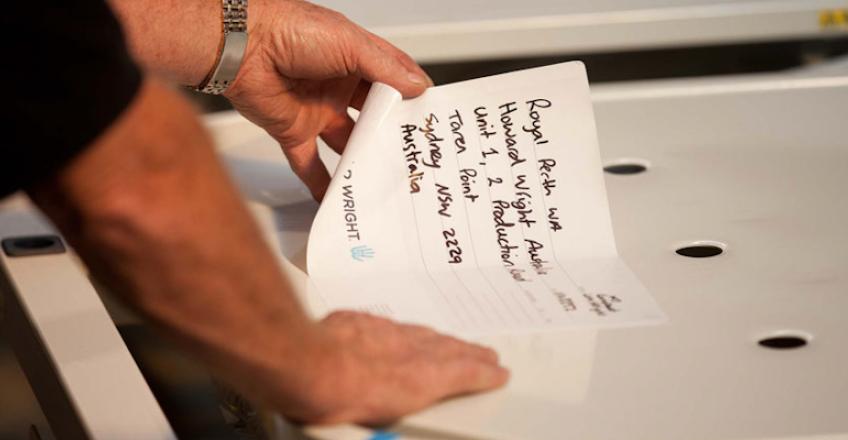 Royal Perth WA
Howard Wright
Unit 1, 2 Production
Taren Point
Sydney NSW 2229
Australia
WRIGHT.